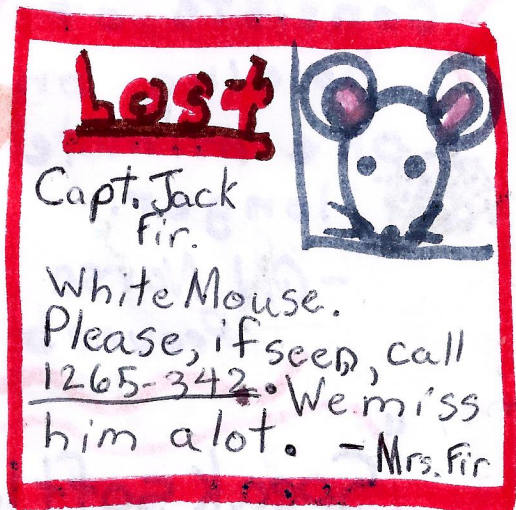 Lost
Capt. Jack
Fir.
White Mouse.
Please, if seen, call
1265-342. We miss
him alot. - Mrs. Fir